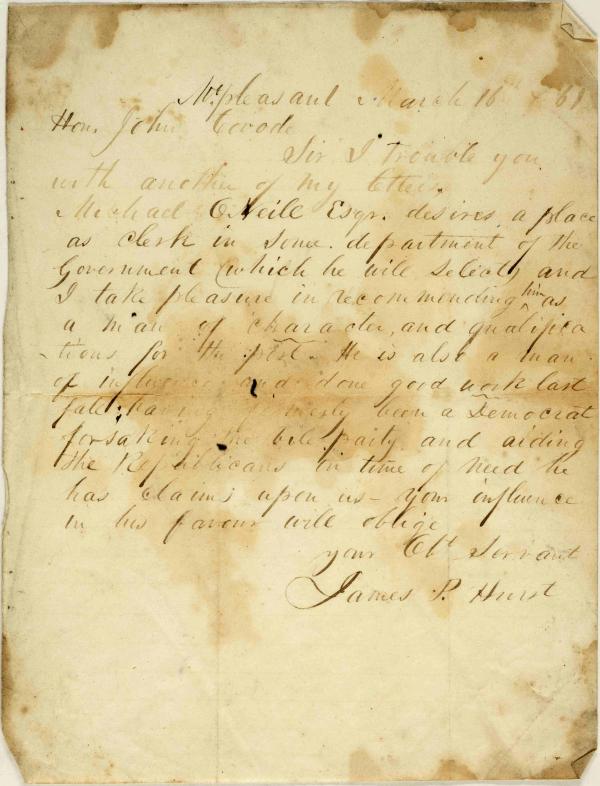 Mt. pleasant March 16th / 61
Hon. John Covode
Sir I trouble you
with another of my letters.
Michael O'Neill Esqr. desires a place
as clerk in some department of the
Government (which he will select) and
I take pleasure in recommending him as
a man of character, and qualifica
tions for the post. He is also a man
of influence and done good work last
fall having formerly been a Democrat
forsaking the vile party and aiding
the Republicans in time of need he
has claims upon us – your influence
in his favour will oblige
your Obt Servant
James P. Hurst